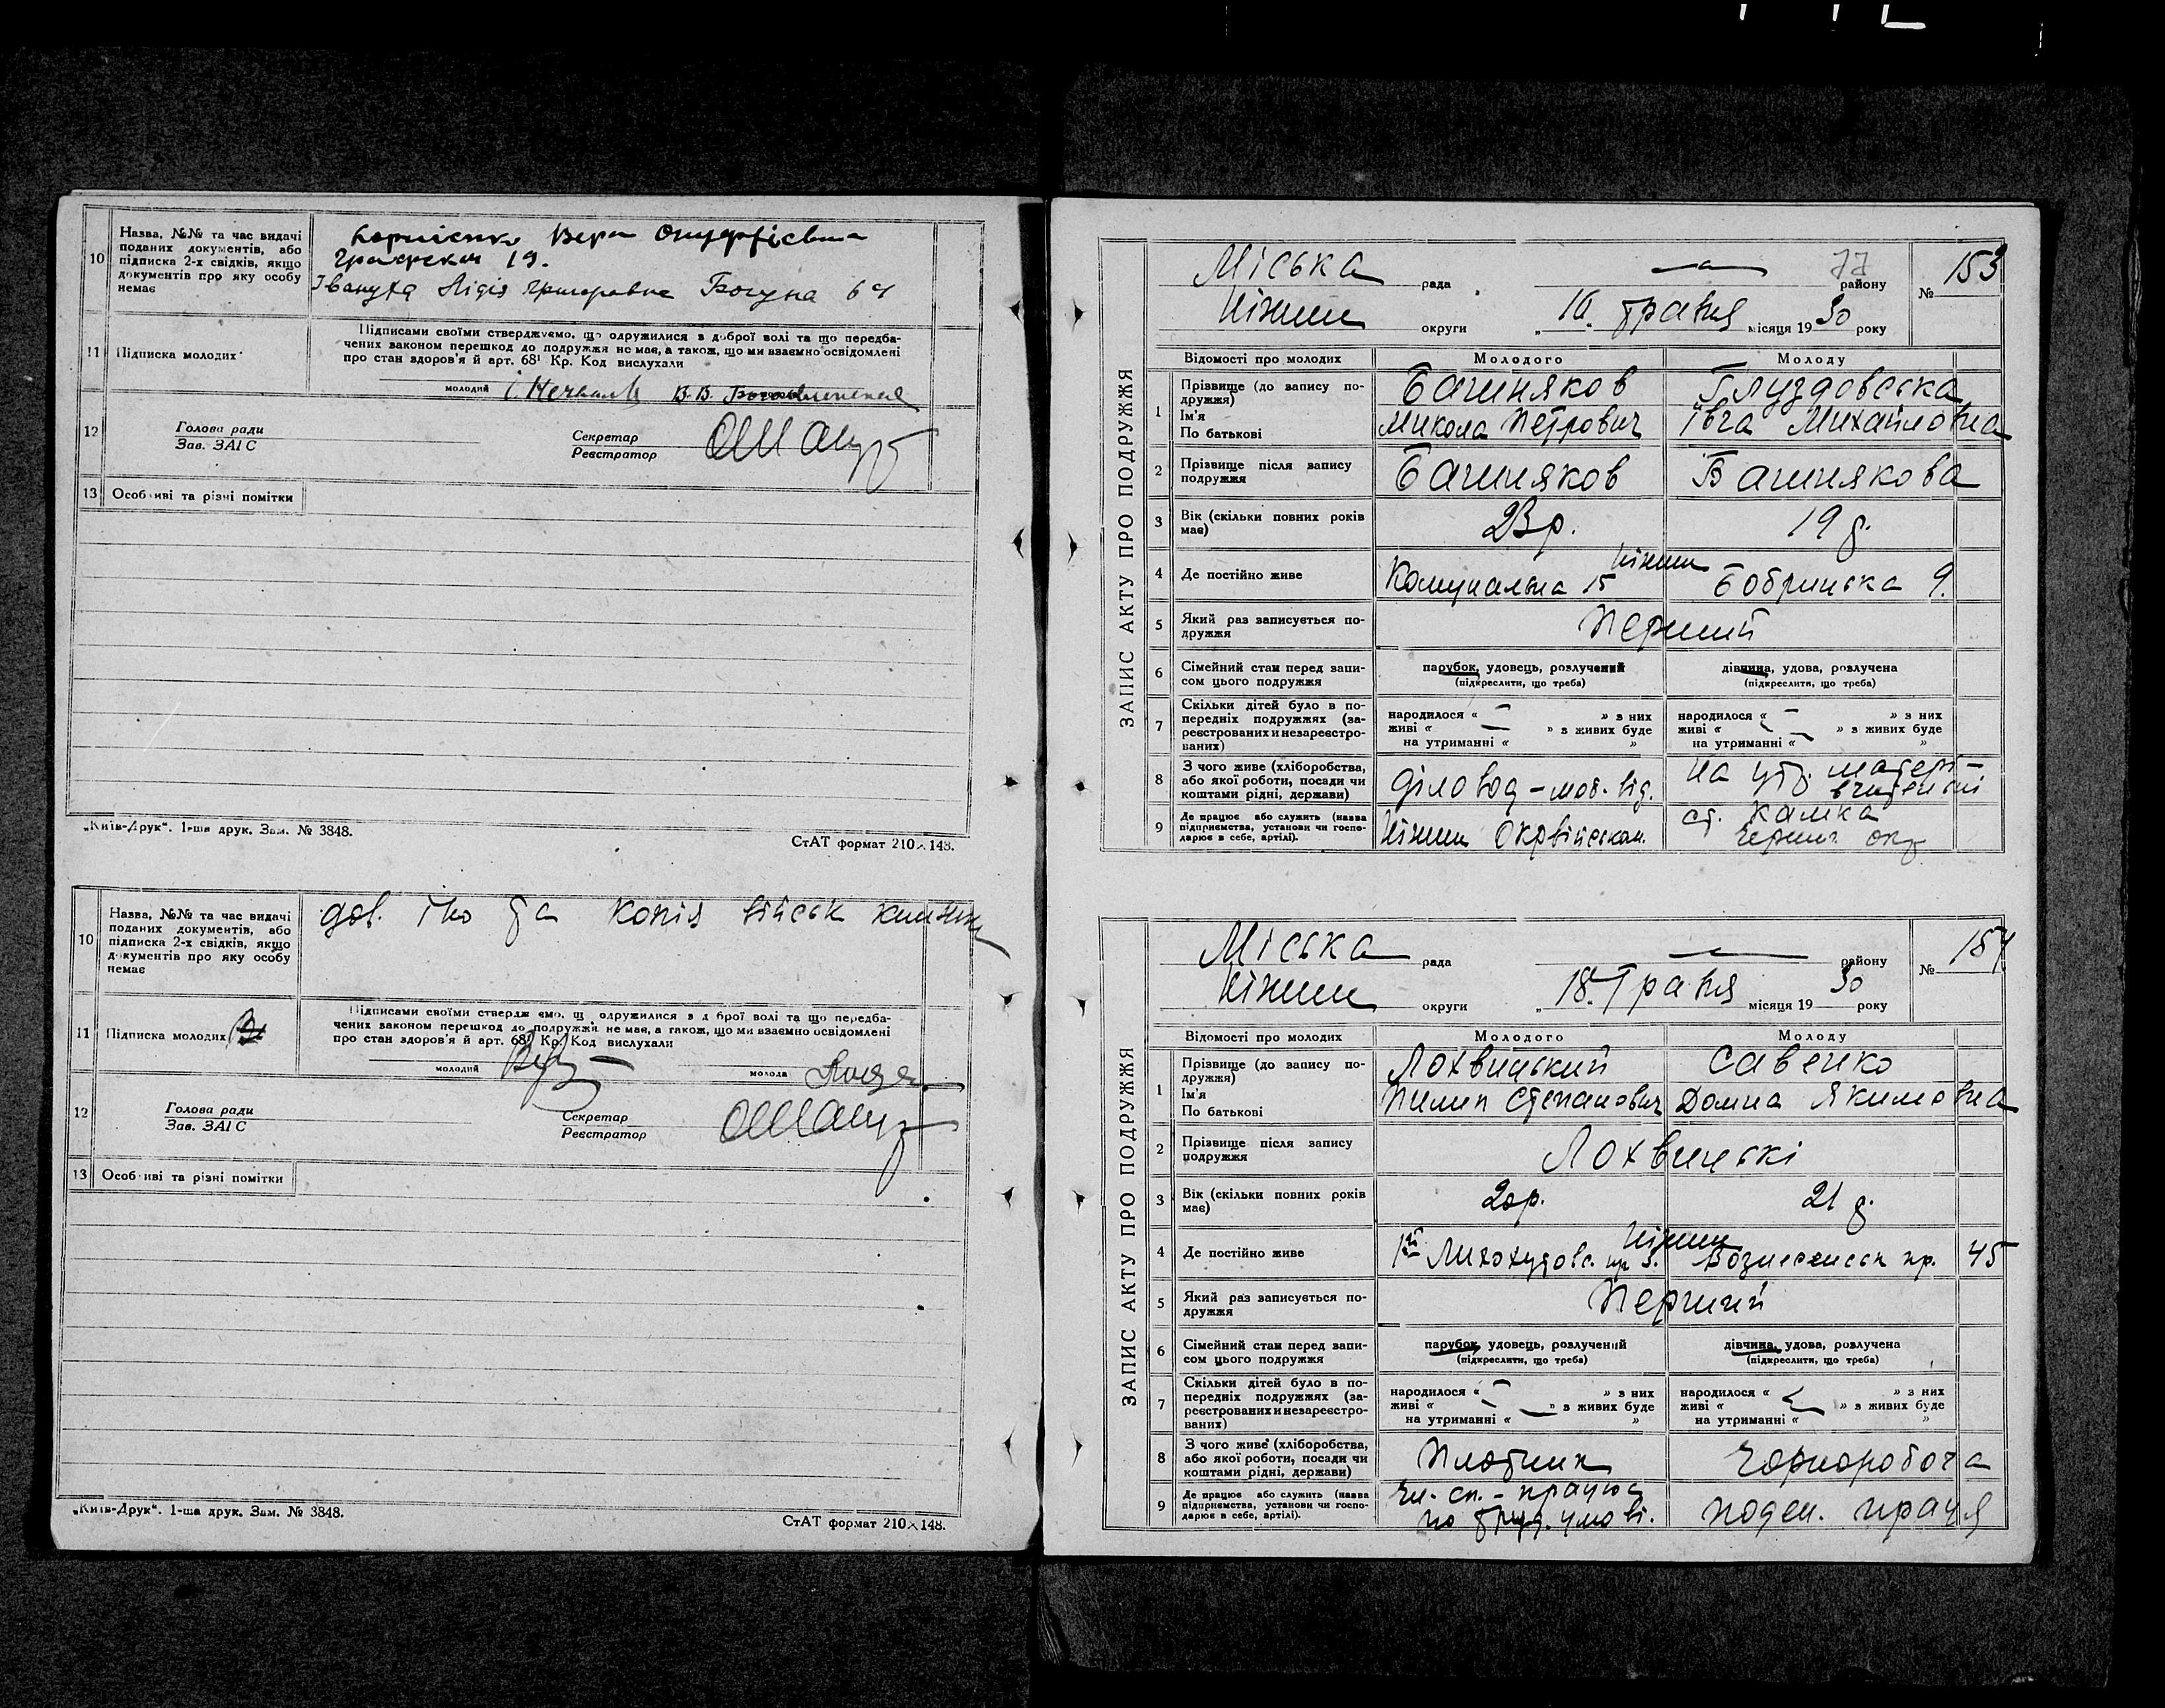 10 Назва, №№ та час видачі
поданих документів, або
підписка 2-х свідків, якщо
документів про яку особу
немає
Корнієнко Вера Онуфрієвна
Графская 19.
Івануха Лідія Григоровна Богуна 64
11 Підписка молодих
Підписами своїми стверджуємо, що одружилися з доброї волі та що передба-
чених законом перешкод до подружжя не має, а також, що ми взаємно освідомлені
про стан здоров'я й арт. 68¹ Кр. Код вислухали
молодий В.В.
12 Голова ради
Зав. ЗАГС
Секретар
Реєстратор
13 Особливі та різні помітки
„Київ-Друк“. 1-ша друк. Зам. № 3848.
СтАТ формат 210×148.
10 Назва, №№ та час видачі
поданих документів, або
підписка 2-х свідків, якщо
документів про яку особу
немає
дов. та копія військ книжки
11 Підписка молодих
Підписами своїми стверджуємо, що одружилися з доброї волі та що передба-
чених законом перешкод до подружжя не має, а також, що ми взаємно освідомлені
про стан здоров'я й арт. 68¹ Кр. Код вислухали
молодий молода
12 Голова ради
Зав. ЗАГС
Секретар
Реєстратор
13 Особливі та різні помітки
„Київ-Друк“. 1-ша друк. Зам. № 3848.
СтАТ формат 210×148.
ЗАПИС АКТУ ПРО ПОДРУЖЖЯ
77
Міська рада — району № 153
Ніжин округи „16“ травня місяця 1930 року
Відомості про молодих Молодого Молоду
1 Прізвище (до запису по-
дружжя)
Ім'я
По батькові
Башняков
Микола Петрович
Глуздовська
Івга Михайловна
2 Прізвище після запису
подружжя
Башняков Башнякова
3 Вік (скільки повних років
має)
23 р. 19 р.
4 Де постійно живе
Ніжин
Комунальна 15 Бобринська 9.
5 Який раз записується по-
дружжя
Перший
6 Сімейний стан перед запи-
сом цього подружжя
парубок, удовець, розлучений
(підкреслити, що треба)
дівчина, удова, розлучена
(підкреслити, що треба)
7 Скільки дітей було в по-
передніх подружжях (за-
реєстрованих и незареєстро-
ваних)
народилося « — » з них
живі « — » з живих буде
на утриманні « »
народилося « — » з них
живі « — » з живих буде
на утриманні « — »
8 З чого живе (хліборобства,
або якої роботи, посади чи
коштами рідні, держави)
Діловод - моб. від.
на утр. матері -
вчительки
9 Де працює або служить (назва
підприємства, установи чи госпо-
дарює в себе, артілі).
Ніжин Окрвійськом.
ст. Камка
ЗАПИС АКТУ ПРО ПОДРУЖЖЯ
Міська рада — району № 154
Ніжин округи „18“ Травня місяця 1930 року
Відомості про молодих Молодого Молоду
1 Прізвище (до запису по-
дружжя)
Ім'я
По батькові
Лохвицький
Пилип Степанович
Савенко
Домна Якимовна
2 Прізвище після запису
подружжя
Лохвицькі
3 Вік (скільки повних років
має)
20р. 21 р.
4 Де постійно живе
Ніжин
1й пр 3. Вознесенськ пр. 45
5 Який раз записується по-
дружжя
Перший
6 Сімейний стан перед запи-
сом цього подружжя
парубок, удовець, розлучений
(підкреслити, що треба)
дівчина, удова, розлучена
(підкреслити, що треба)
7 Скільки дітей було в по-
передніх подружжях (за-
реєстрованих и незареєстро-
ваних)
народилося « — » з них
живі « — » з живих буде
на утриманні « »
народилося « — » з них
живі « — » з живих буде
на утриманні « »
8 З чого живе (хліборобства,
або якої роботи, посади чи
коштами рідні, держави)
Плотник Чорноробоча
9 Де працює або служить (назва
підприємства, установи чи госпо-
дарює в себе, артілі).
чл. сп. - працює
по труд. умові.
поден. праця